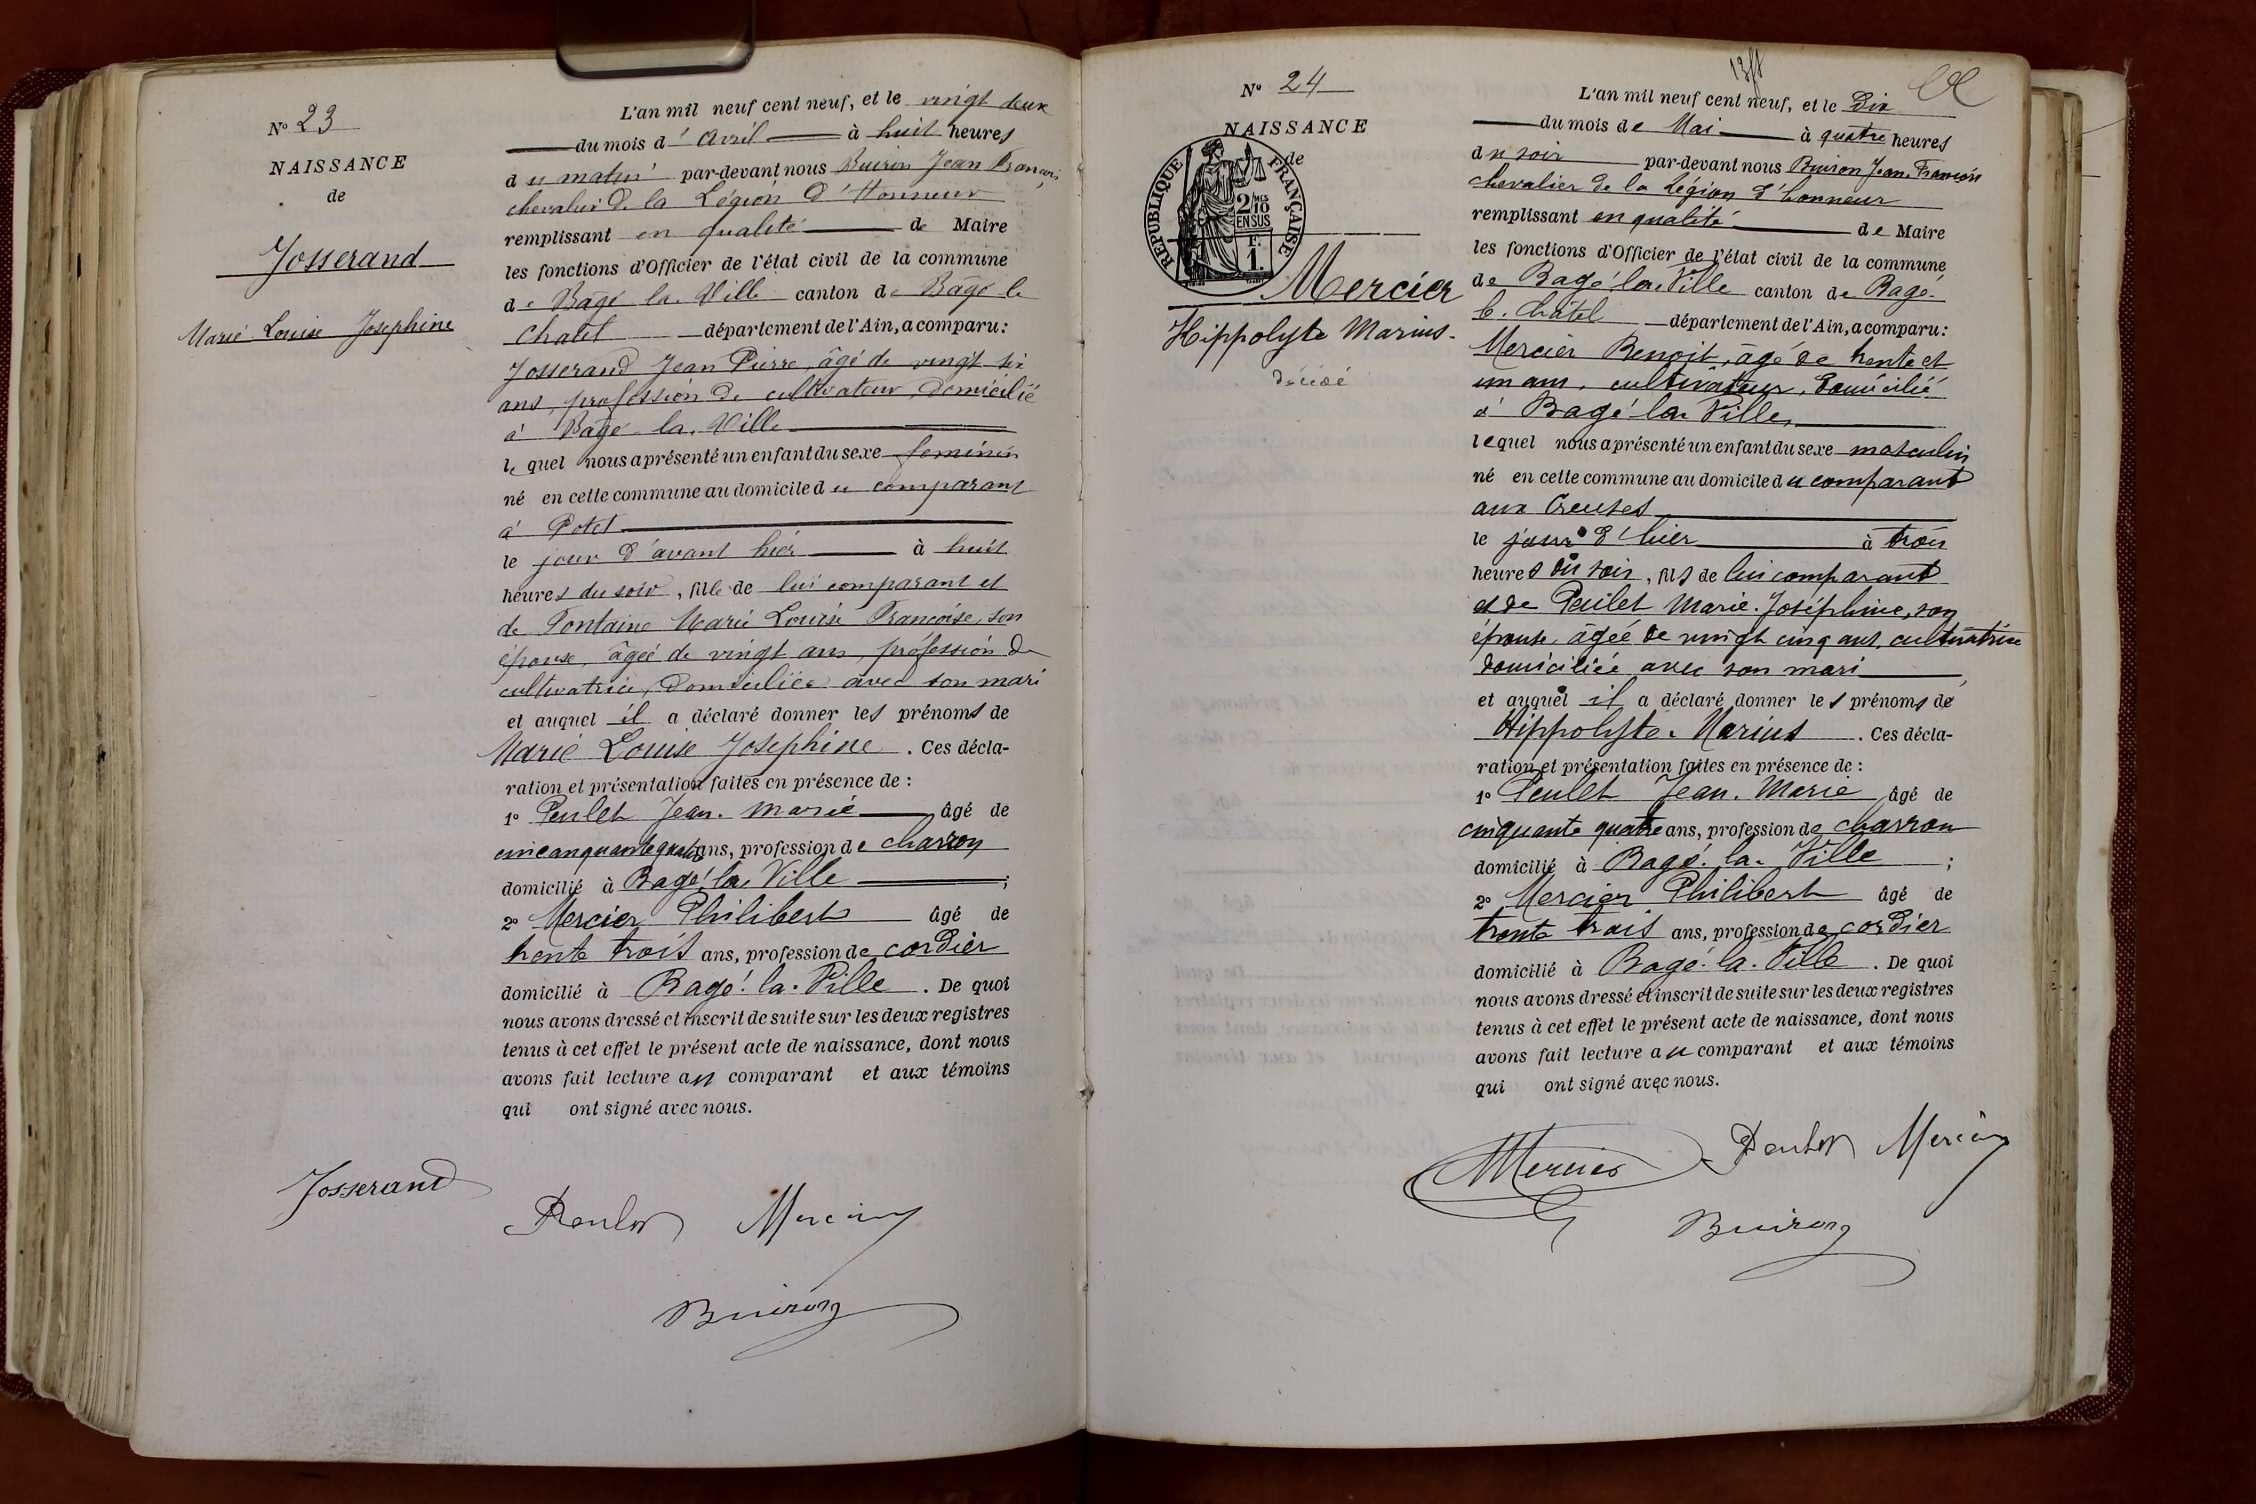 N° 23
NAISSANCE
de
Josserand
Marie Louise Josephine
L'an mil neuf cent neuf, et le vingt deux
du mois d'Avril à huit heures
du matin par-devant nous Buiron Jean François
chevalier de la Légion d'Honneur
remplissant en qualité de Maire
les fonctions d'Officier de l'état civil de la commune
de Bagé la Ville canton de Bagé le
Chatel département de l'Ain, a comparu :
Josserand Jean Pierre, âgé de vingt six
ans, profession de cultivateur, domicilié
à Bagé la Ville
lequel nous a présenté un enfant du sexe feminin
né en cette commune au domicile du comparant
à Potet
le jour d'avant hier à huit
heures du soir, fille de lui comparant et
de Fontaine Marie Louise Françoise, son
épouse, âgée de vingt ans, profession de
cultivatrice, domiciliée avec son mari
et auquel il a déclaré donner les prénoms de
Marie Louise Josephine. Ces décla-
ration et présentation faites en présence de :
1° Peulet Jean. Marie âgé de
ans, profession de charron
domicilié à Bagé la Ville ;
2° Mercier Philibert âgé de
trente trois ans, profession de cordier
domicilié à Bagé. la. Ville. De quoi
nous avons dressé et inscrit de suite sur les deux registres
tenus à cet effet le présent acte de naissance, dont nous
avons fait lecture au comparant et aux témoins
qui ont signé avec nous.
Josserand
Peulet Mercier
Buiron
N° 24
NAISSANCE
de
RÉPUBLIQUE FRANÇAISE
2 MES 10 EN SUS
F. 1.
Mercier
Hippolyte Marius.
décédé
L'an mil neuf cent neuf, et le Dix
du mois de Mai à quatre heures
du soir par-devant nous Buiron Jean François
chevalier de la Légion d'honneur
remplissant en qualité de Maire
les fonctions d'Officier de l'état civil de la commune
de Bagé la Ville canton de Bagé.
le. Châtel département de l'Ain, a comparu :
Mercier Benoit, âgé de trente et
un ans, cultivateur, domicilié
à Bagé la Ville,
lequel nous a présenté un enfant du sexe masculin
né en cette commune au domicile du comparant
aux Creuses
le jour d'hier à trois
heures du soir, fils de lui comparant
et de Peulet Marie. Joséphine, son
épouse, âgée de vingt cinq ans, cultivatrice
domiciliée avec son mari
et auquel il a déclaré donner les prénoms de
Hippolyte. Marius. Ces décla-
ration et présentation faites en présence de :
1° Peulet Jean. Marie âgé de
cinquante quatre ans, profession de charron
domicilié à Bagé. la. Ville ;
2° Mercier Philibert âgé de
trente trois ans, profession de cordier
domicilié à Bagé. la. Ville. De quoi
nous avons dressé et inscrit de suite sur les deux registres
tenus à cet effet le présent acte de naissance, dont nous
avons fait lecture au comparant et aux témoins
qui ont signé avec nous.
Mercier Peulet Mercier
Buiron